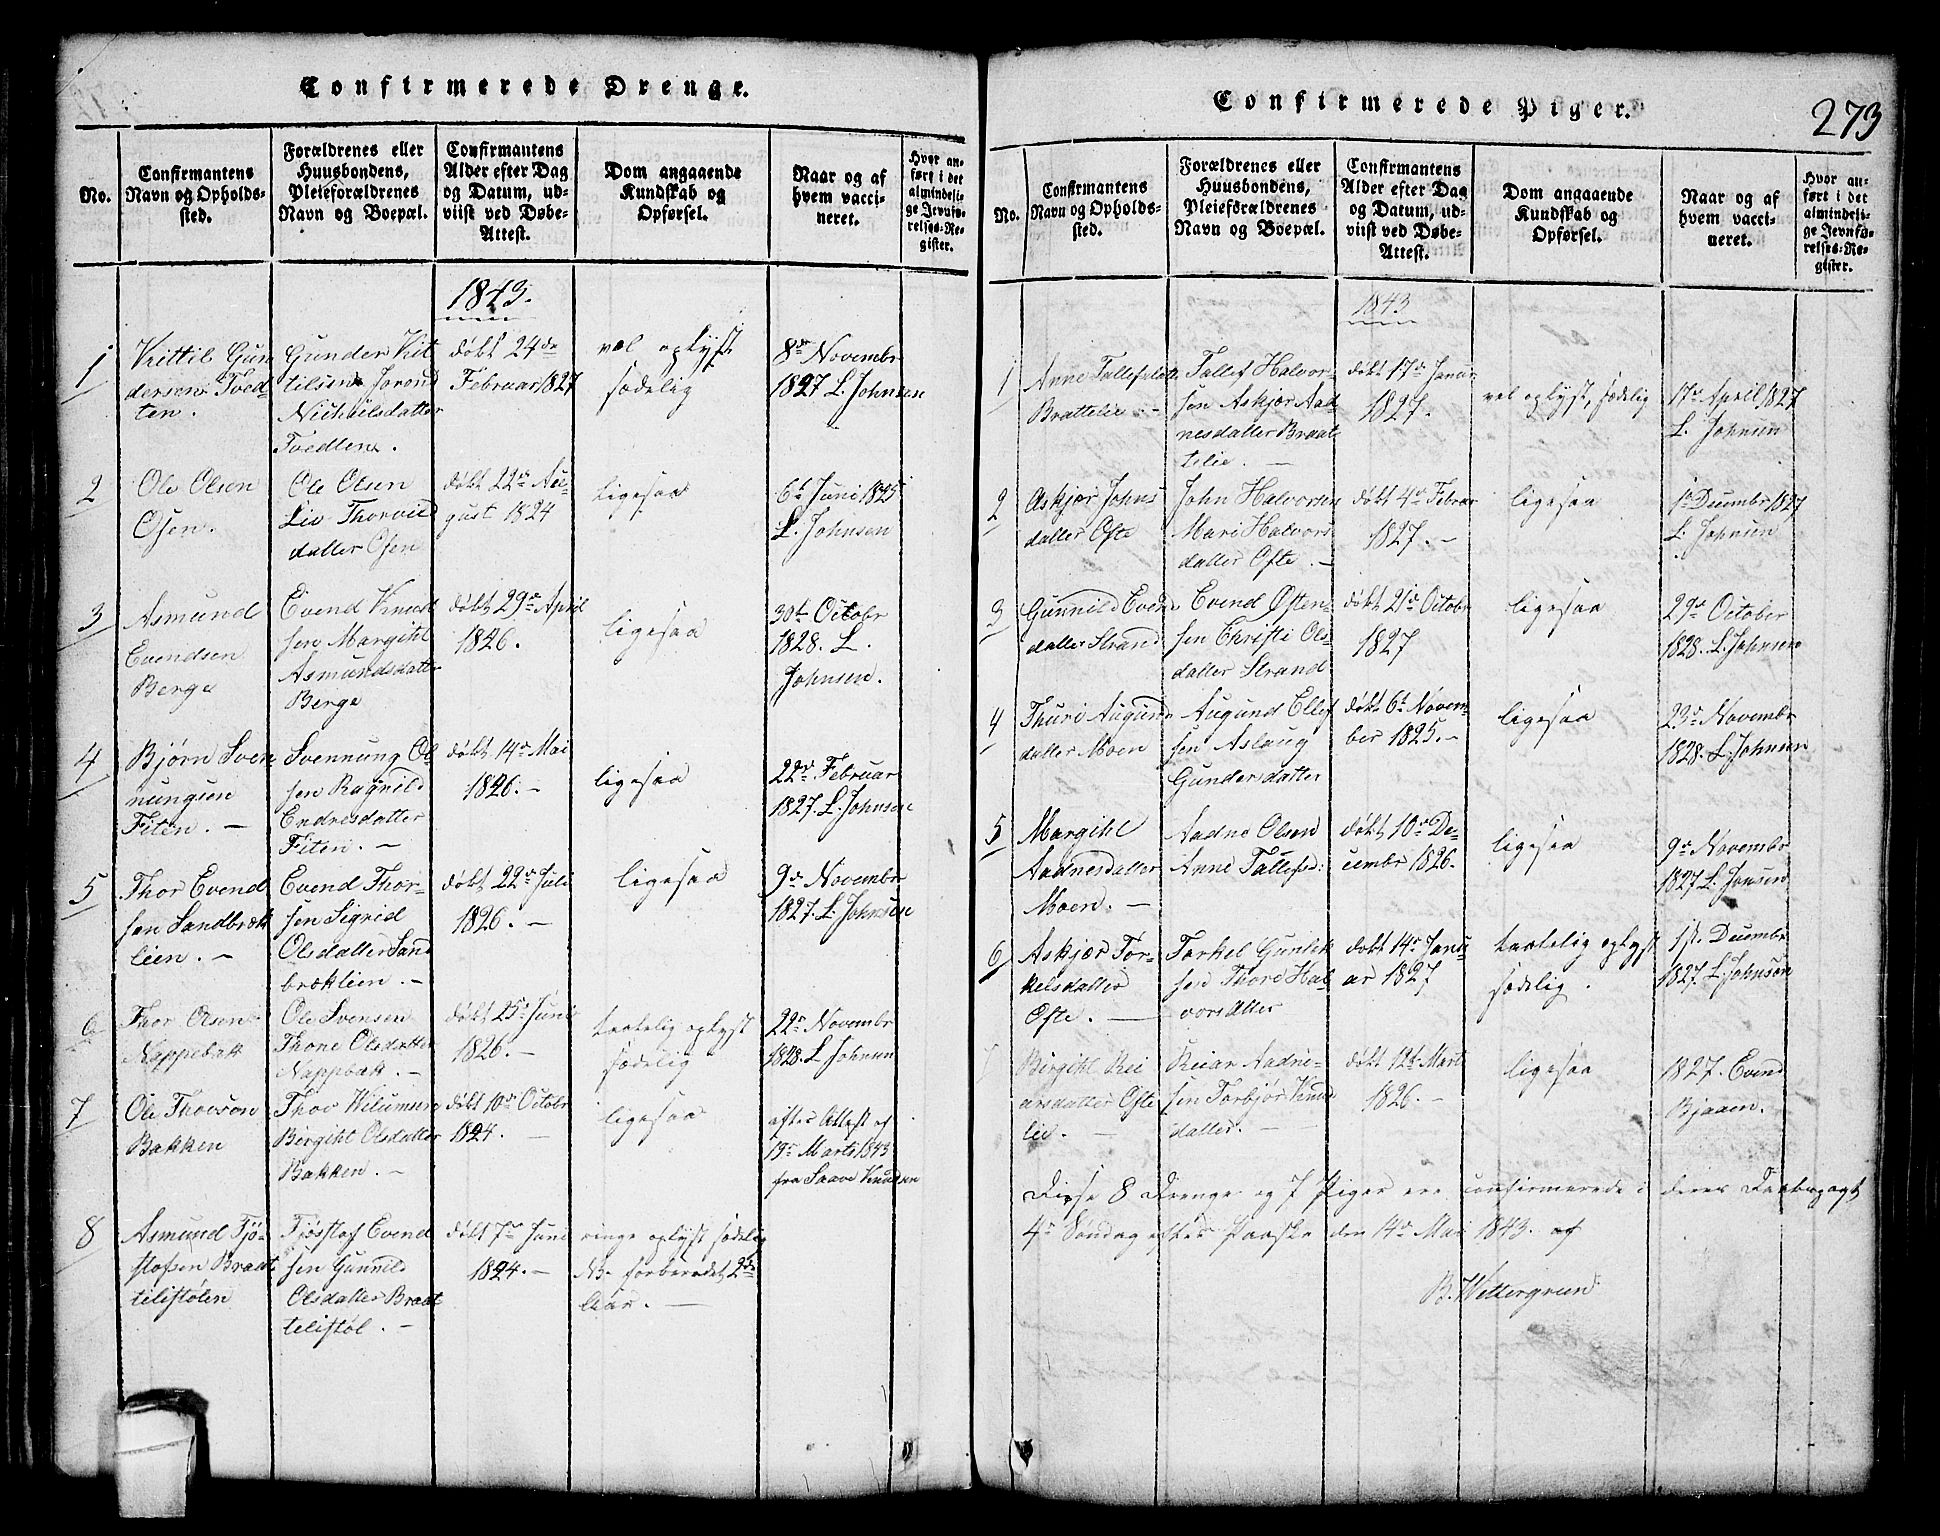 Confirmerede Drenge.
No.
Confirmantens
Navn og Opholds-
sted.
Forældrenes eller
Huusbondens,
Pleieforældrenes
Navn og Boepæl.
Confirmantens
Alder efter Dag
og Datum, ud-
viist ved Døbe-
Attest.
Dom angaaende
Kundskab og
Opførsel.
Naar og af
hvem vacci-
neret.
Hvor an-
ført i det
almindeli-
ge Jevnfø-
relses-Re-
gister.
1843.
1
Kittil Gun
dersen Tved-
ten.
Gunder Kit
tilsen Jorond
Nichuelsdatter
Tvedten.
døbt 24de
Februar 1827
vel oplyst
sædelig
8de Novembr
1827 L. Johnsen
2
Ole Olsen
Osen.
Ole Olsen
Liv Thorvild
datter Osen
døbt 22de Au-
gust 1824
ligesaa
6t Juni 1825
L. Johnsen
3
Asmund
Evendsen
Berge
Evend Knud
sen Margiht
Asmundsdatter
Berge
døbt 29de April
1826.
ligesaa
30t Octobr
1828. L.
Johnsen.
4
Bjørn Sven
nungsen
Fiten. –
Svennung Ol
sen Ragnild
Endresdatter
Fiten. –
døbt 14de Mai
1826. –
ligesaa
22de Februar
1827. L. Johnsen
5
Thor Evend
sen Sandbræk
lien. –
Evend Thor-
sen Sigrid
Olsdatter Sand
bræklien. –
døbt 22de Juli
1826. –
ligesaa
9de Novembr
1827. L. Johnsen
6
Thor Olsen
Nappebak
Ole Svensen
Thone Olsdatter
Nappbak. –
døbt 25de Juni
1826. –
taalelig oplyst
sædelig
22de Novembr
1828. L Johnsen
7
Ole Thovsøn
Bakken
Thov Wilumsen
Birgiht Olsdatter
Bakken. –
døbt 10de Octobr
1824. –
ligesaa
efter Attest af
19de Marts 1843
fra Saave Knudsen
8
Asmund Tjø-
stofsen Braat
telistølen
Tjøstof Evend
sen Gunnild
Olsdatter Braat
telistøl. –
døbt 7de Juni
1824. –
ringe oplyst sædelig
NB. forberedet 2de
Aar. –
Confirmerede Piger.
273
No.
Confirmantens
Navn og Opholds-
sted.
Forældrenes eller
Huusbondens,
Pleieforældrenes
Navn og Boepæl.
Confirmantens
Alder efter Dag
og Datum, ud-
viist ved Døbe-
Attest.
Dom angaaende
Kundskab og
Opførsel.
Naar og af
hvem vacci-
neret.
Hvor an-
ført i det
almindeli-
ge Jevnfø-
relses-Re-
gister.
1843
1
Anne Tallefsdatr
Brattelie. –
Tallef Halvor-
sen Askjær Aad-
nesdatter Braat
telie. –
døbt 17de Januar
1827.
vel oplyst, sædelig
17de April 1827
L. Johnsen
2
Askjær Johns
datter Ofte
John Halvorsen
Mari Halvors
datter Ofte. –
døbt 4de Februar
1827. –
ligesaa
1de Decembr 1827
L. Johnsen
3
Gunnild Evend
datter Strand
Evend Østen-
sen Christi Ols
datter Strand
døbt 21de Octobr
1827
ligesaa
29de October
1828. L. Johnsen
4
Thuri Augund
datter Moen
Augund Ellef
sen Aslaug
Gundersdatter
døbt 6t Novem-
ber 1825. –
ligesaa
23de Novembr
1828. L. Johnsen
5
Margiht
Aadnesdatter
Moen. –
Aadne Olsen
Anne Tallefsd:
døbt 10de De-
cembr 1826.
ligesaa
9de Novembr
1827 L. Jonsen
6
Askjær Tor-
kelsdatter
Ofte. –
Torkel Gunlek
sen Thore Hal
vorsdtter
døbt 14de Janu-
ar 1827
taalelig oplyst
sædelig.
1st. Decembr
1827. L. Johnsen
7
Birgiht Rei
arsdatter Ofte
lie. –
Reiar Aadne-
sen Torbjør Knud
datter. –
døbt 12t Marts
1826. –
ligesaa
1827. Evend
Bjaaen.
Disse 8 Drenge og 7 Piger ere confirmerede i deres Daabspagt
4de Søndag efter Paaske den 14de Mai 1843. af
B. Wettergreen